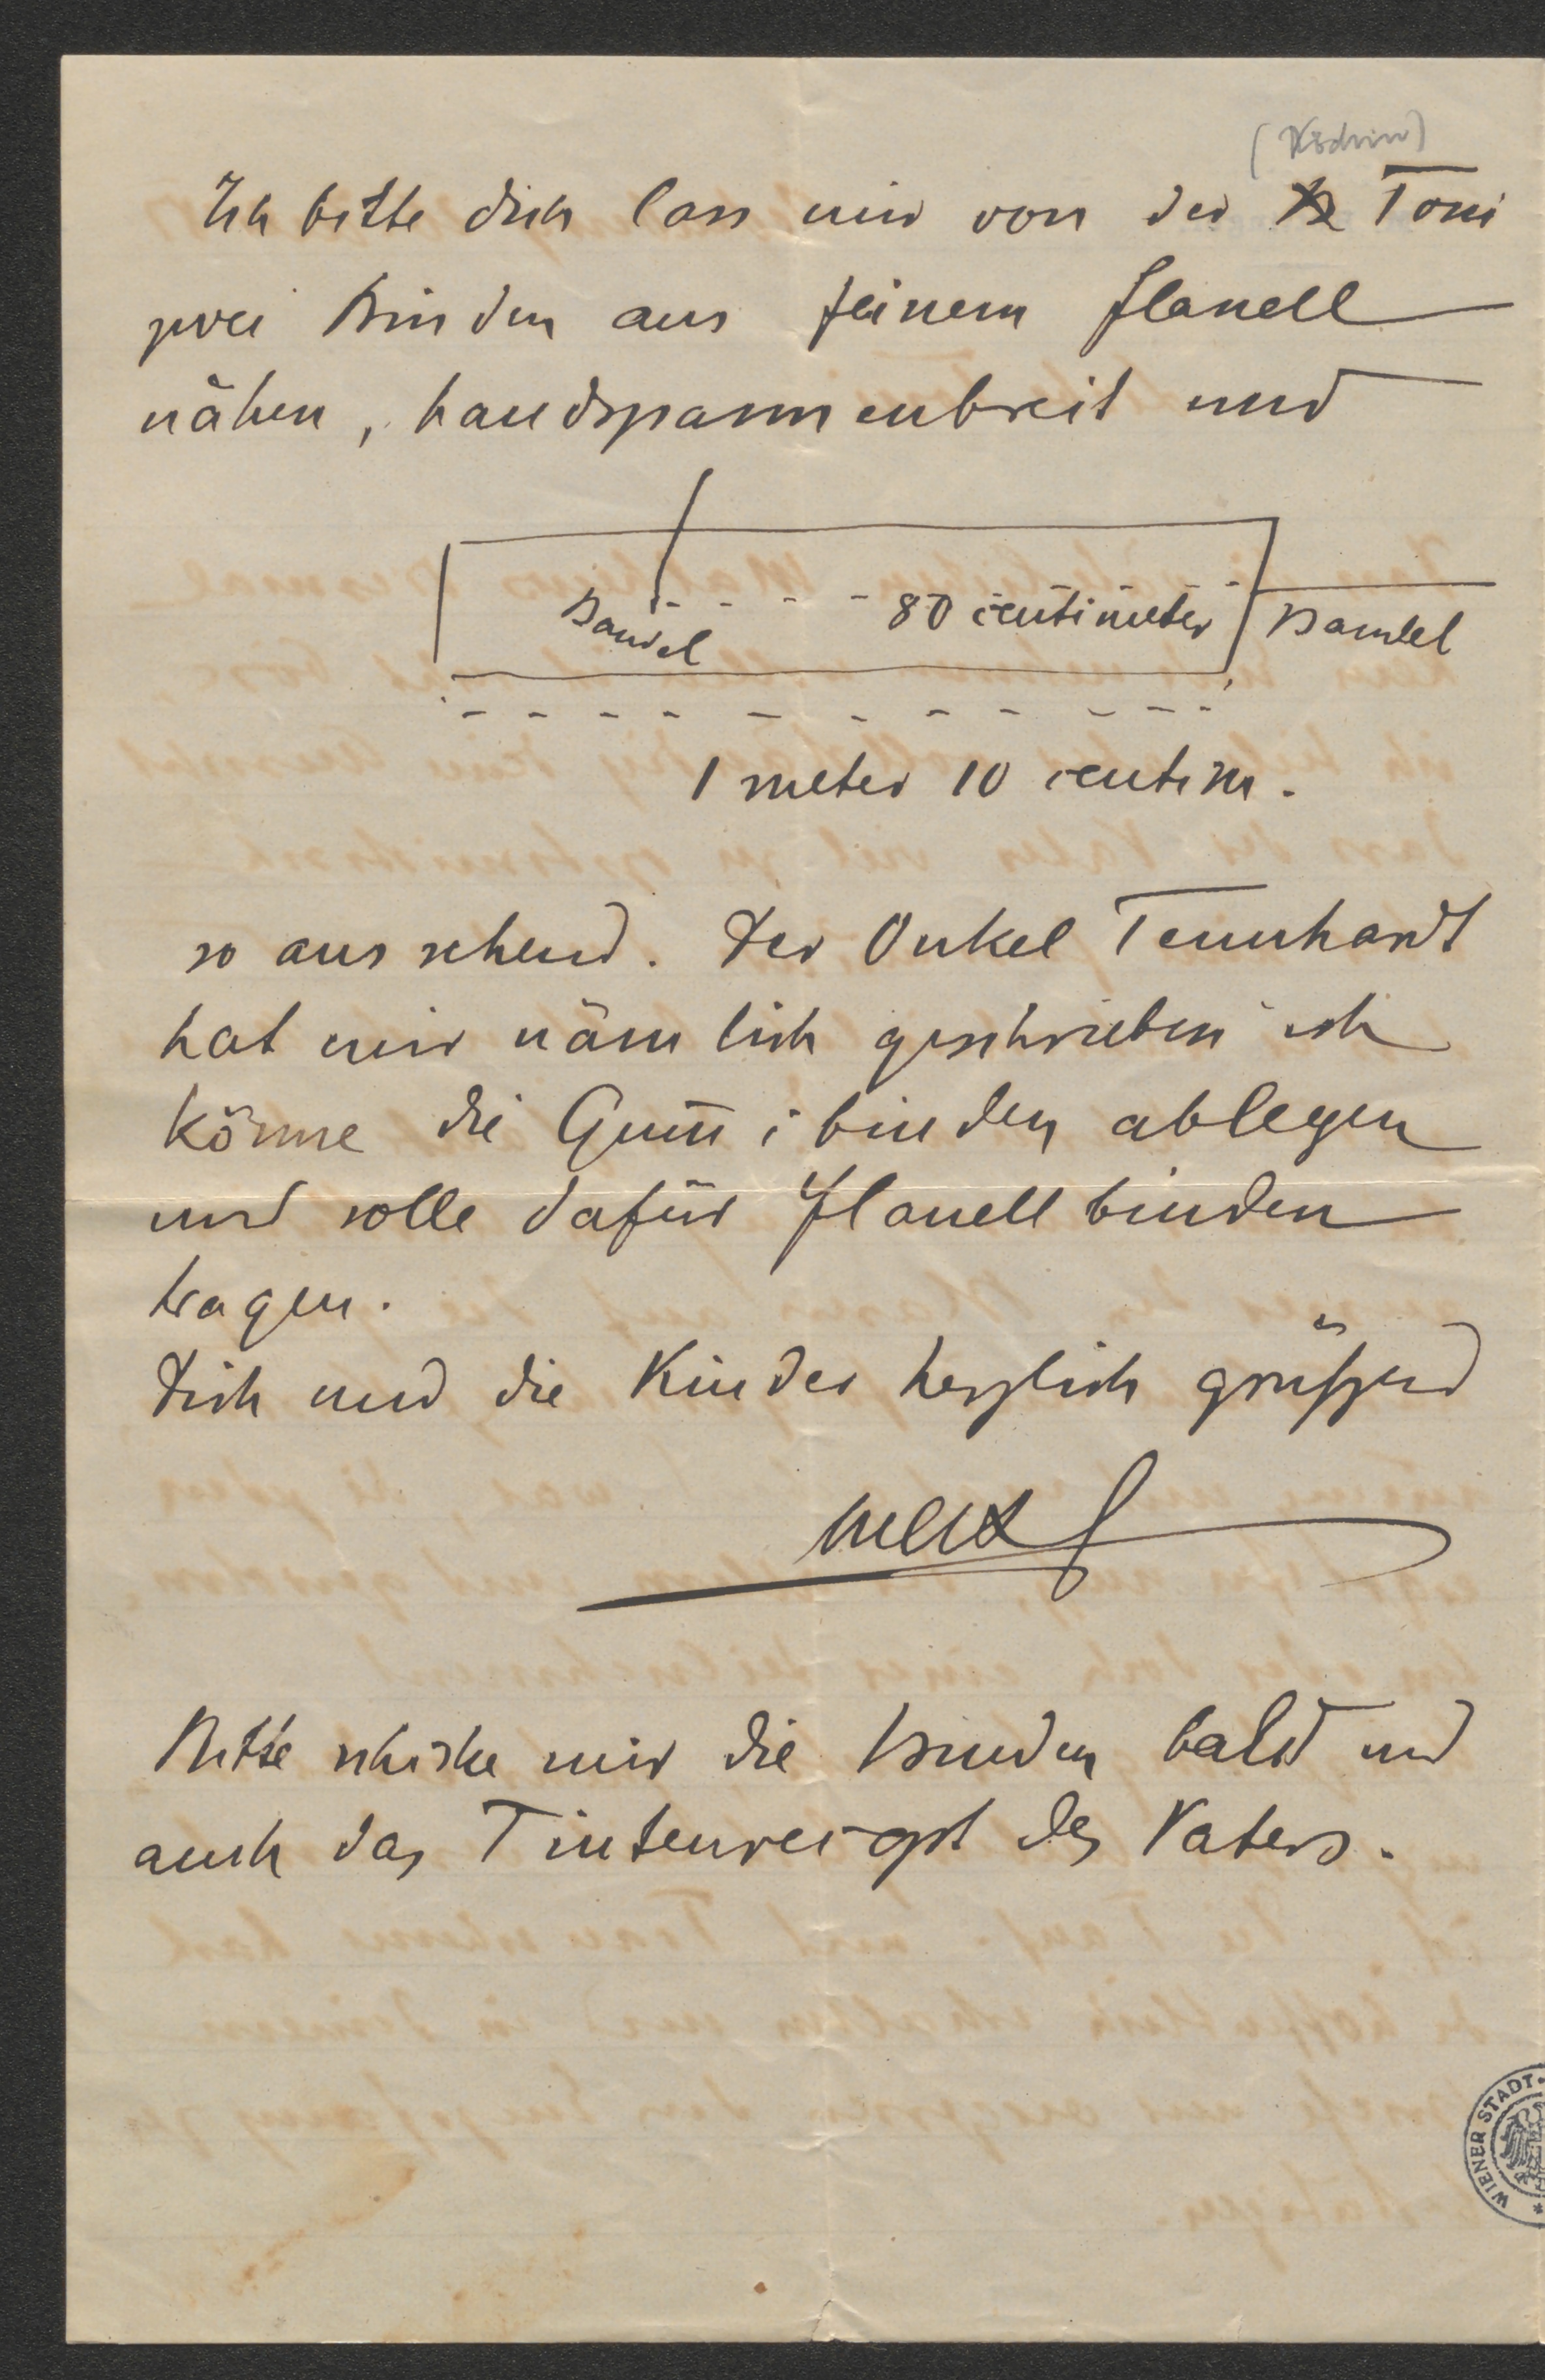 (Köchin)
Ich bitte dich lass mir von der Toni
zwei Binden aus feinem Flanell
nähen, handspannenbreit und
Bandel 80 centimeter Bandel
1 meter 10 centim.
so aussehend. Der Onkel Tennhardt
hat mir nämlich geschrieben ich
könne die Gum̄ibinden ablegen
und solle dafür Flanellbinden
tragen.
Dich und die Kinder herzlich grüßend
Max
Bitte schicke mir die Binden bald und
auch das des Vaters.
WIENER STADT-